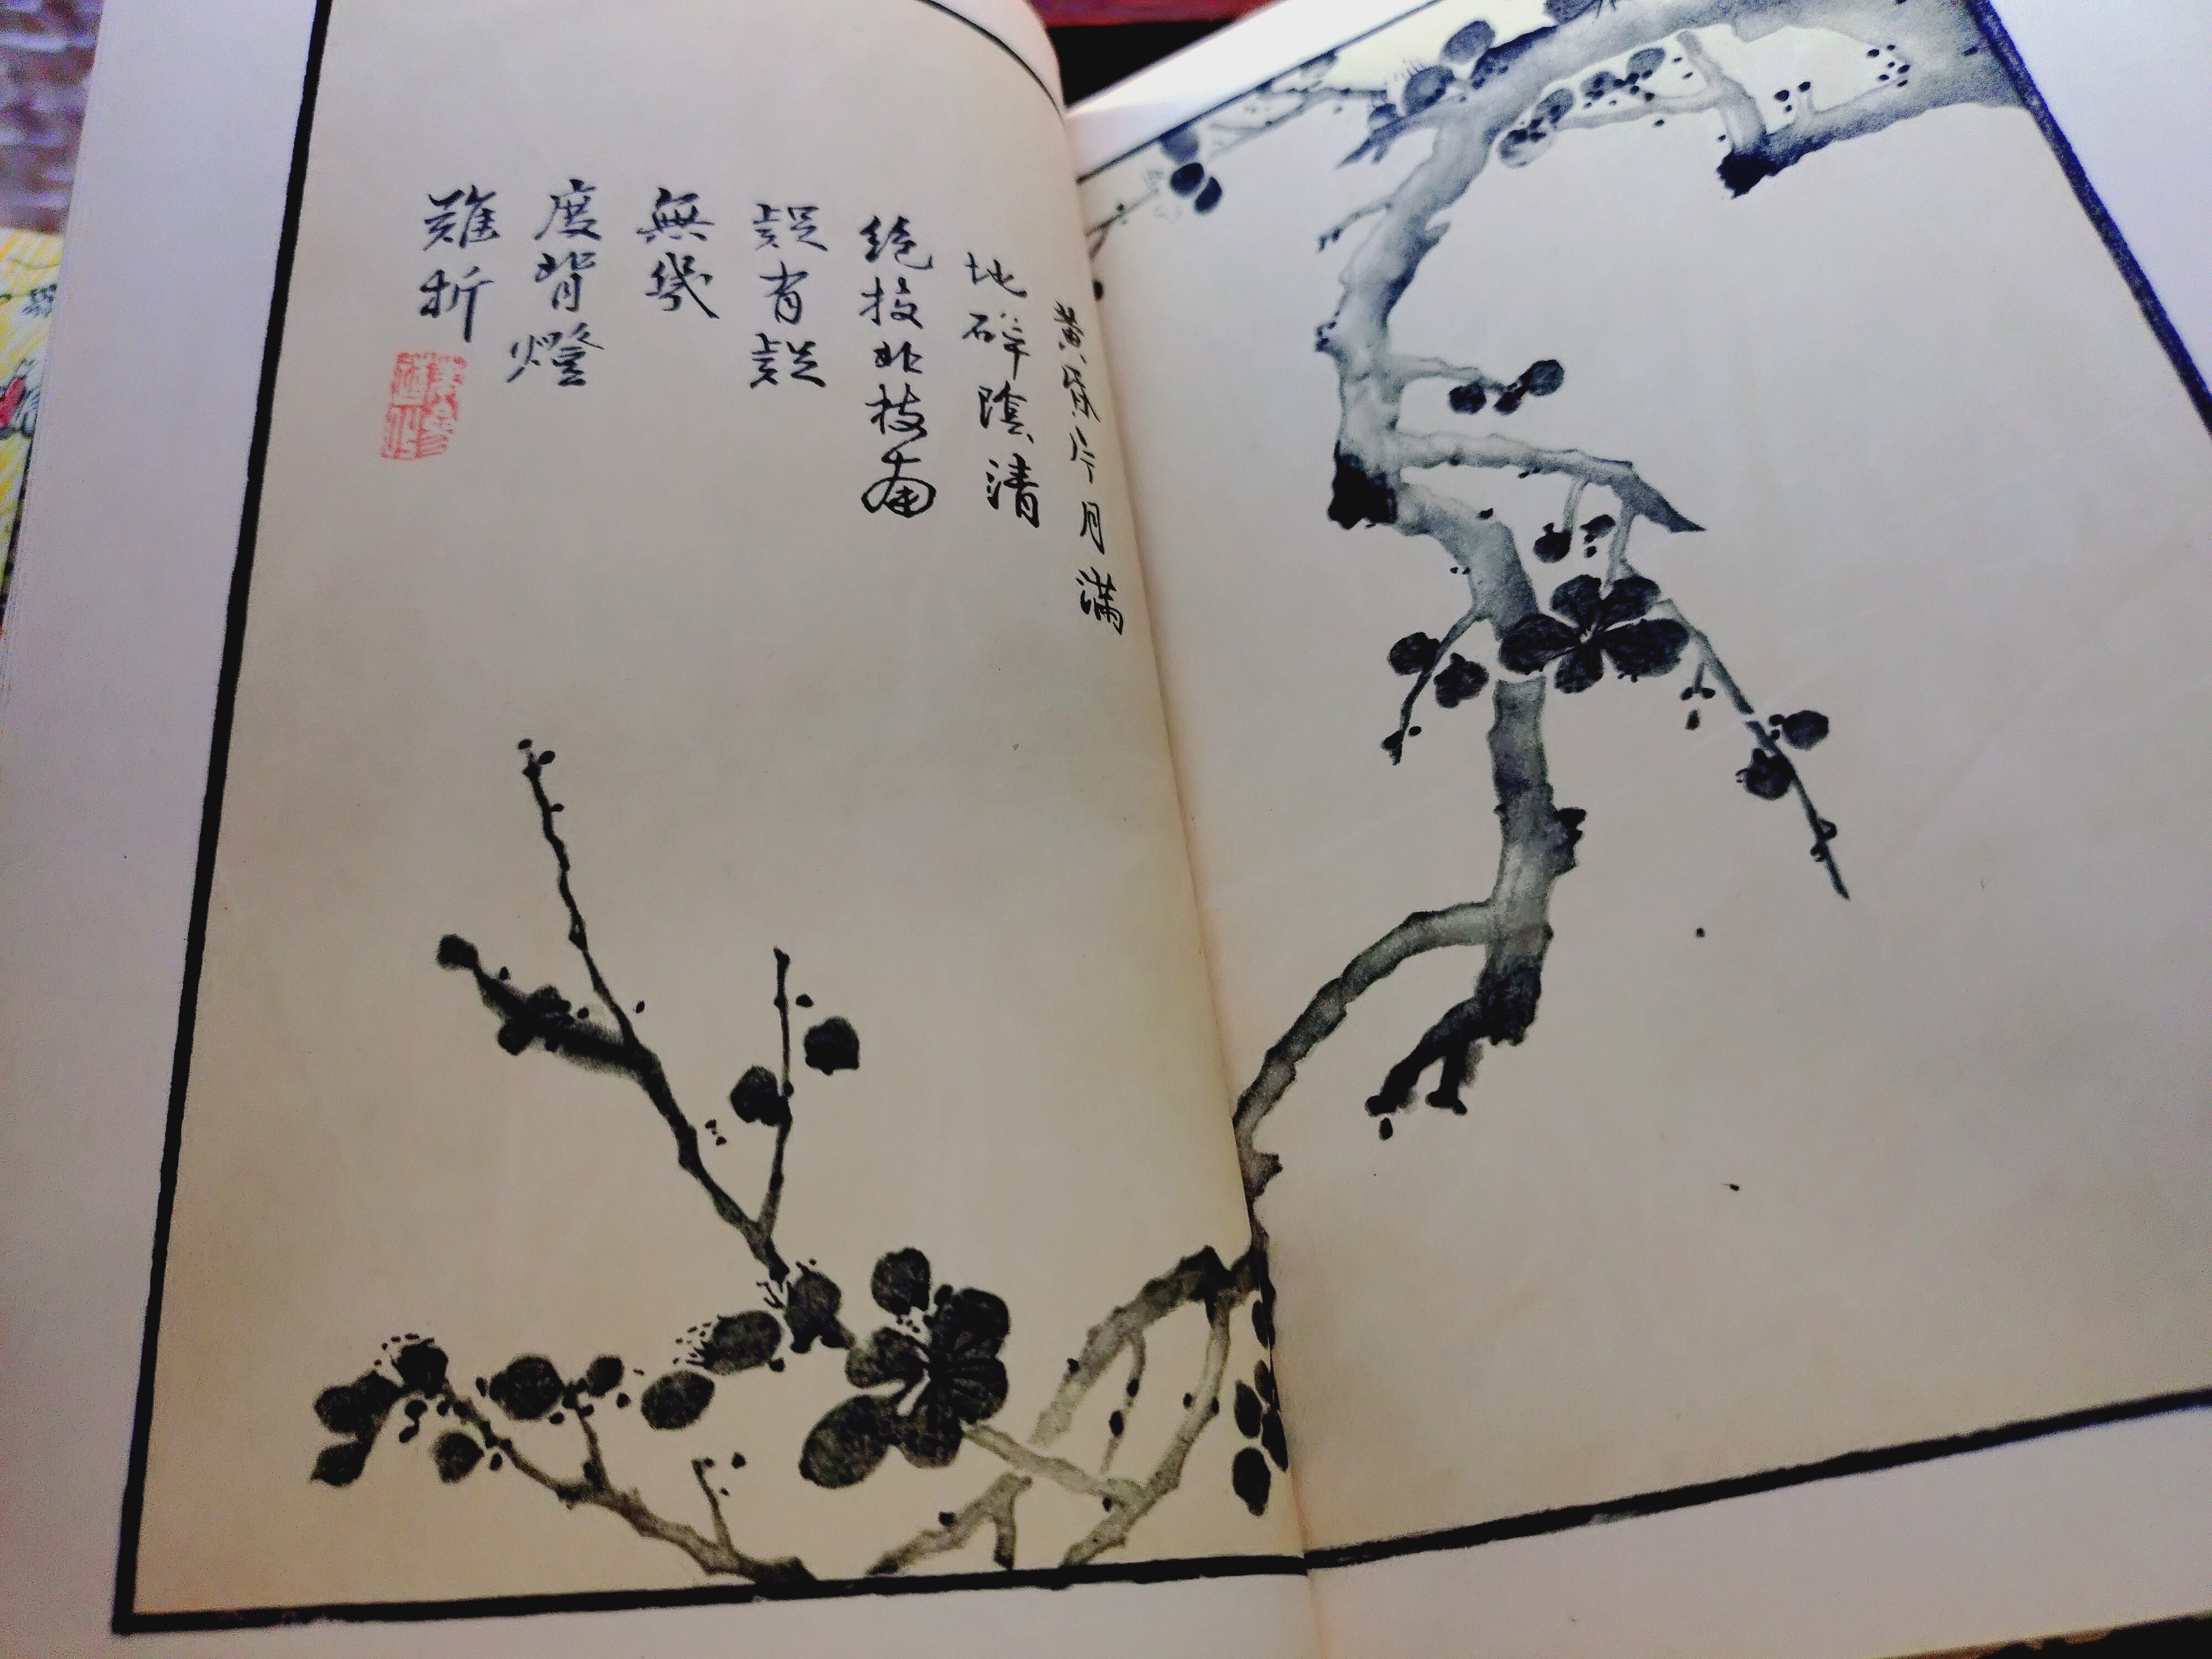 黃昏片月滿
地碎陰清
絕技北枝南
疑有疑
無幾
度背燈
難折